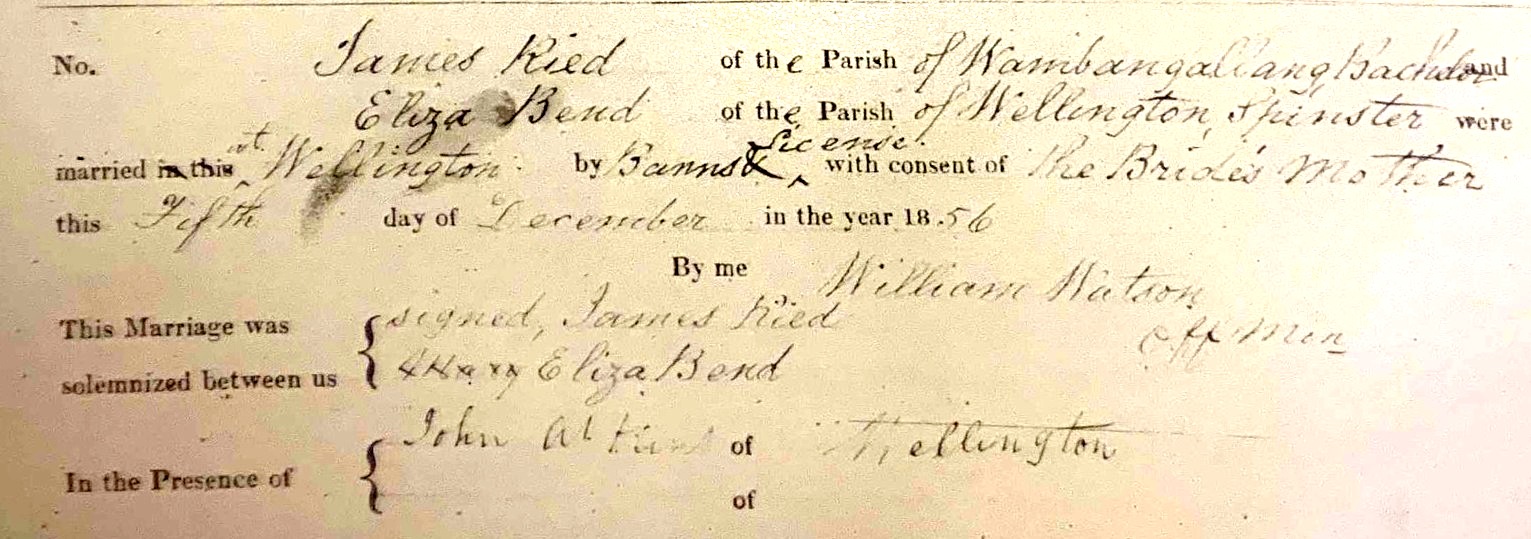 No. James Ried of the Parish of Wambangallang Bachelor and
Eliza Bend of the Parish of Wellington, Spinster were
married in this at Wellington by Banns & License. with consent of The Bride's Mother
this Fifth day of December in the year 1856
By me William Watson
This Marriage was signed, James Ried Off Min
solemnized between us Eliza Bend
In the Presence of John Atkins of Wellington
of